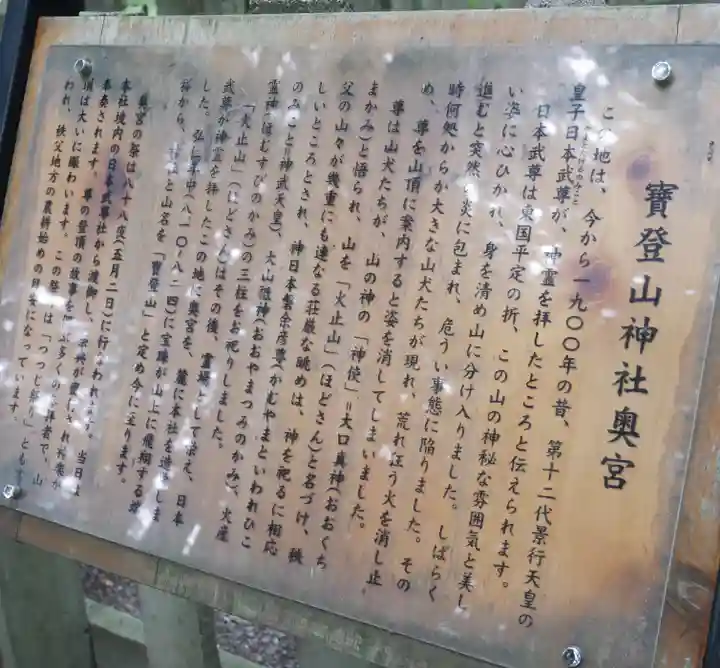 寶登山神社奥宮
この地は、今から一九〇〇年の昔、第十二代景行天皇の
皇子日本武尊が、神霊を拝したところと伝えられます。
日本武尊は東国平定の折、この山の神秘な雰囲気と美し
い姿に心ひかれ、身を清め山に分け入りました。しばらく
進むと突然、炎に包まれ、危うい事態に陥りました。その
時何処からか大きな山犬たちが現れ、荒れ狂う火を消し止
め、尊を山頂に案内すると姿を消してしまいました。
尊は山犬たちが、山の神の「神使」=大口真神(おおくち
まかみ)と悟られ、山を「火止山」(ほどさん)と名づけ、秩
父の山々が幾重にも連なる荘厳な眺めは、神を祀るに相応
しいところとされ、神日本磐余彦尊(かむやまといわれひこ
のみこと・神武天皇)、大山祇神(おおやまつみのかみ)、火産
霊神(ほむすびのかみ)の三柱をお祀りしました。
「火止山」(ほどさん)はその後、霊場として栄え、日本
武尊が神霊を拝したこの地に奥宮を、麓に本社を造営しま
した。弘仁年中(八一〇〜八二四)に宝珠が山上に飛翔する
祥から、神社と山名を「寶登山」と定め今に至ります。
奥宮の祭は八十八夜(五月二日)に行なわれます。当日は
本社境内の日本武尊社から渡御し、
奉奏されます。尊の登頂の故事を
多くの
拝者で、山
頂は大いに賑わいます。この祭は「つつじ祭り」とも
われ、秩父地方の農耕始めの目安になっています。